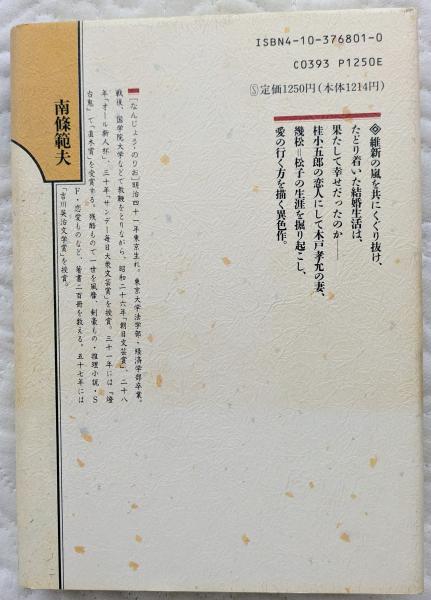 ISBN4-10-376801-0
C0393 P1250E
Ⓢ定価1250円(本体1214円)
◎維新の嵐を共にくぐり抜け、
たどり着いた結婚生活は、
果たして幸せだったのか――
桂小五郎の恋人にして木戸孝允の妻、
幾松=松子の生涯を掘り起こし、
愛の行く方を描く異色作。
[なんじょう・のりお]明治四十一年東京生れ。東京大学法学部・経済学部卒業。
戦後、国学院大学などで教鞭をとりながら、昭和二十六年「朝日文芸賞」、二十八
年「オール新人杯」、三十年「サンデー毎日大衆文芸賞」を授賞。三十一年には『燈
台鬼』で「直木賞」を受賞する。残酷もので一世を風靡、剣豪もの・推理小説・S
F・恋愛ものなど、著書二百冊を数える。五十七年には
「吉川英治文学賞」を授賞。
南條範夫